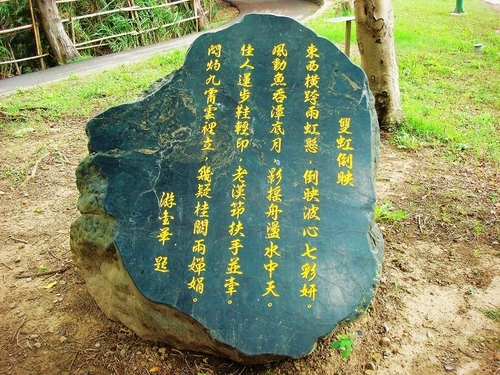 雙虹倒映
東西橫跨兩虹懸，倒映波心七彩妍。
風動魚吞潭底月，影搖舟盪水中天。
佳人邁步鞋輕印，老漢筇扶手並牽。
閃灼九霄雲裡立，幾疑桂闕兩嬋娟。
游金華 題